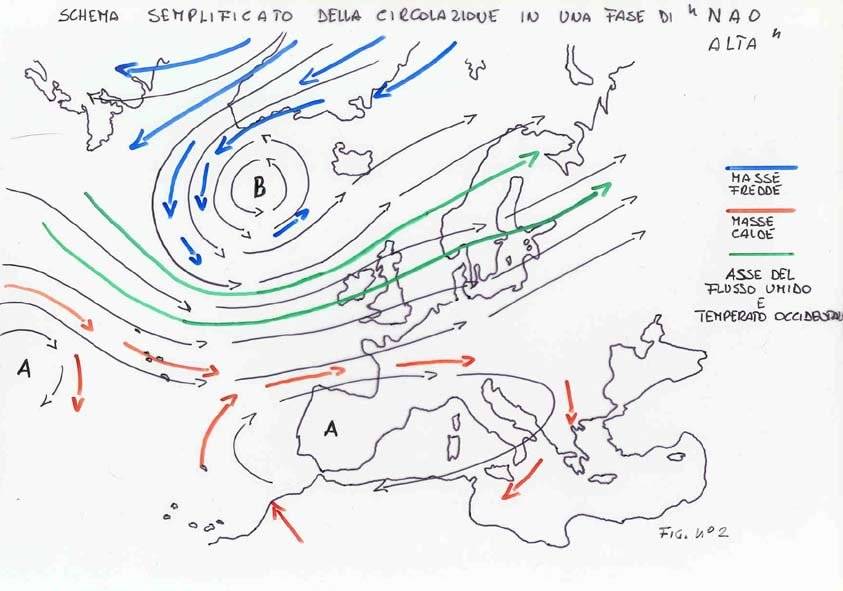 SCHEMA SEMPLIFICATO DELLA CIRCOLAZIONE IN UNA FASE DI "NAO
ALTA"
B
MASSE
FREDDE
MASSE
CALDE
ASSE DEL
FLUSSO UMIDO
E
TEMPERATO OCCIDENTALE
A
A
FIG. N° 2